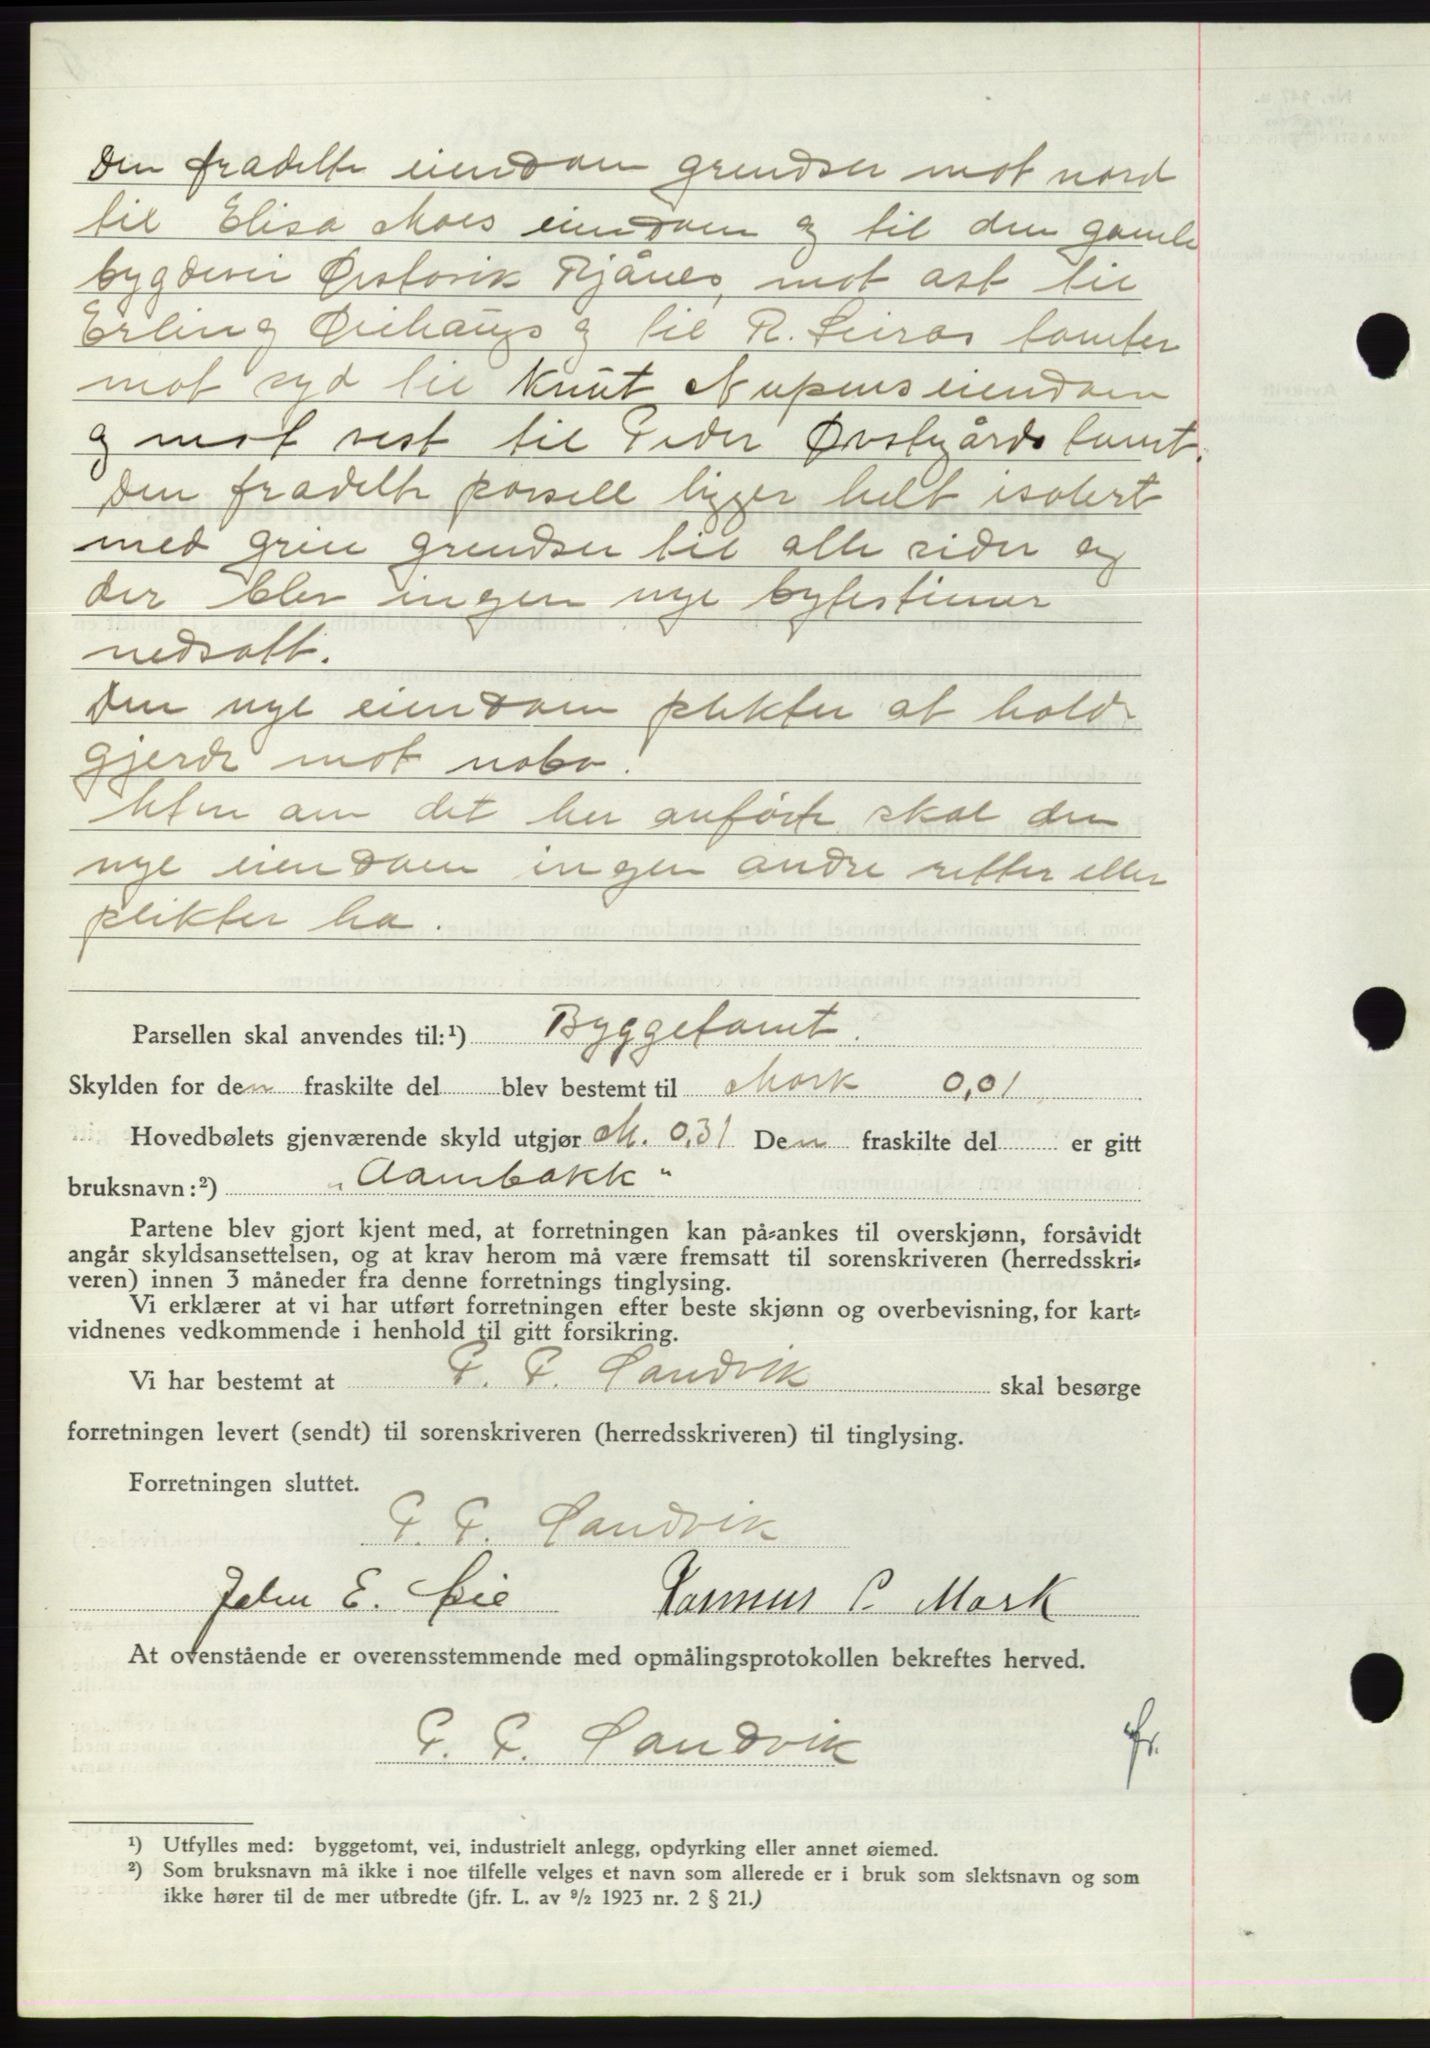 Den fradelte eiendom grendser mot nord
til Elisa Moes eiendom og til den gamle
bygdevei Ørstavik Rjånes, mot ost til
Erling Øiehaugs og til R. Leiras tomter
mot syd til Knut Nupens eiendom
og mot vest til Peder Øvstegårds tomt.
Den fradelte parsell ligger helt isolert
med greie grendser til alle sider og
der blev ingen nye bytesteiner
nedsatt.
Den nye eiendom plikter at holde
gjerde mot nabo.
Uten om det her anførte skal den
nye eiendom ingen andre retter eller
plikter ha.
Parsellen skal anvendes til:¹) Byggetomt.
Skylden for den fraskilte del blev bestemt til Mark 0,01
Hovedbølets gjenværende skyld utgjør M. 0,31 Den fraskilte del er gitt
bruksnavn:²) „Aambakk"
Partene blev gjort kjent med, at forretningen kan på-ankes til overskjønn, forsåvidt
angår skyldsansettelsen, og at krav herom må være fremsatt til sorenskriveren (herredsskri-
veren) innen 3 måneder fra denne forretnings tinglysing.
Vi erklærer at vi har utført forretningen efter beste skjønn og overbevisning, for kart-
vidnenes vedkommende i henhold til gitt forsikring.
Vi har bestemt at P. P. Sandvik skal besørge
forretningen levert (sendt) til sorenskriveren (herredsskriveren) til tinglysing.
Forretningen sluttet.
P. P. Sandvik
John E. Øie Rasmus P. Mork
At ovenstående er overensstemmende med opmålingsprotokollen bekreftes herved.
P. P. Sandvik
¹) Utfylles med: byggetomt, vei, industrielt anlegg, opdyrking eller annet øiemed.
²) Som bruksnavn må ikke i noe tilfelle velges et navn som allerede er i bruk som slektsnavn og som
ikke hører til de mer utbredte (jfr. L. av ⁹/₂ 1923 nr. 2 § 21.)